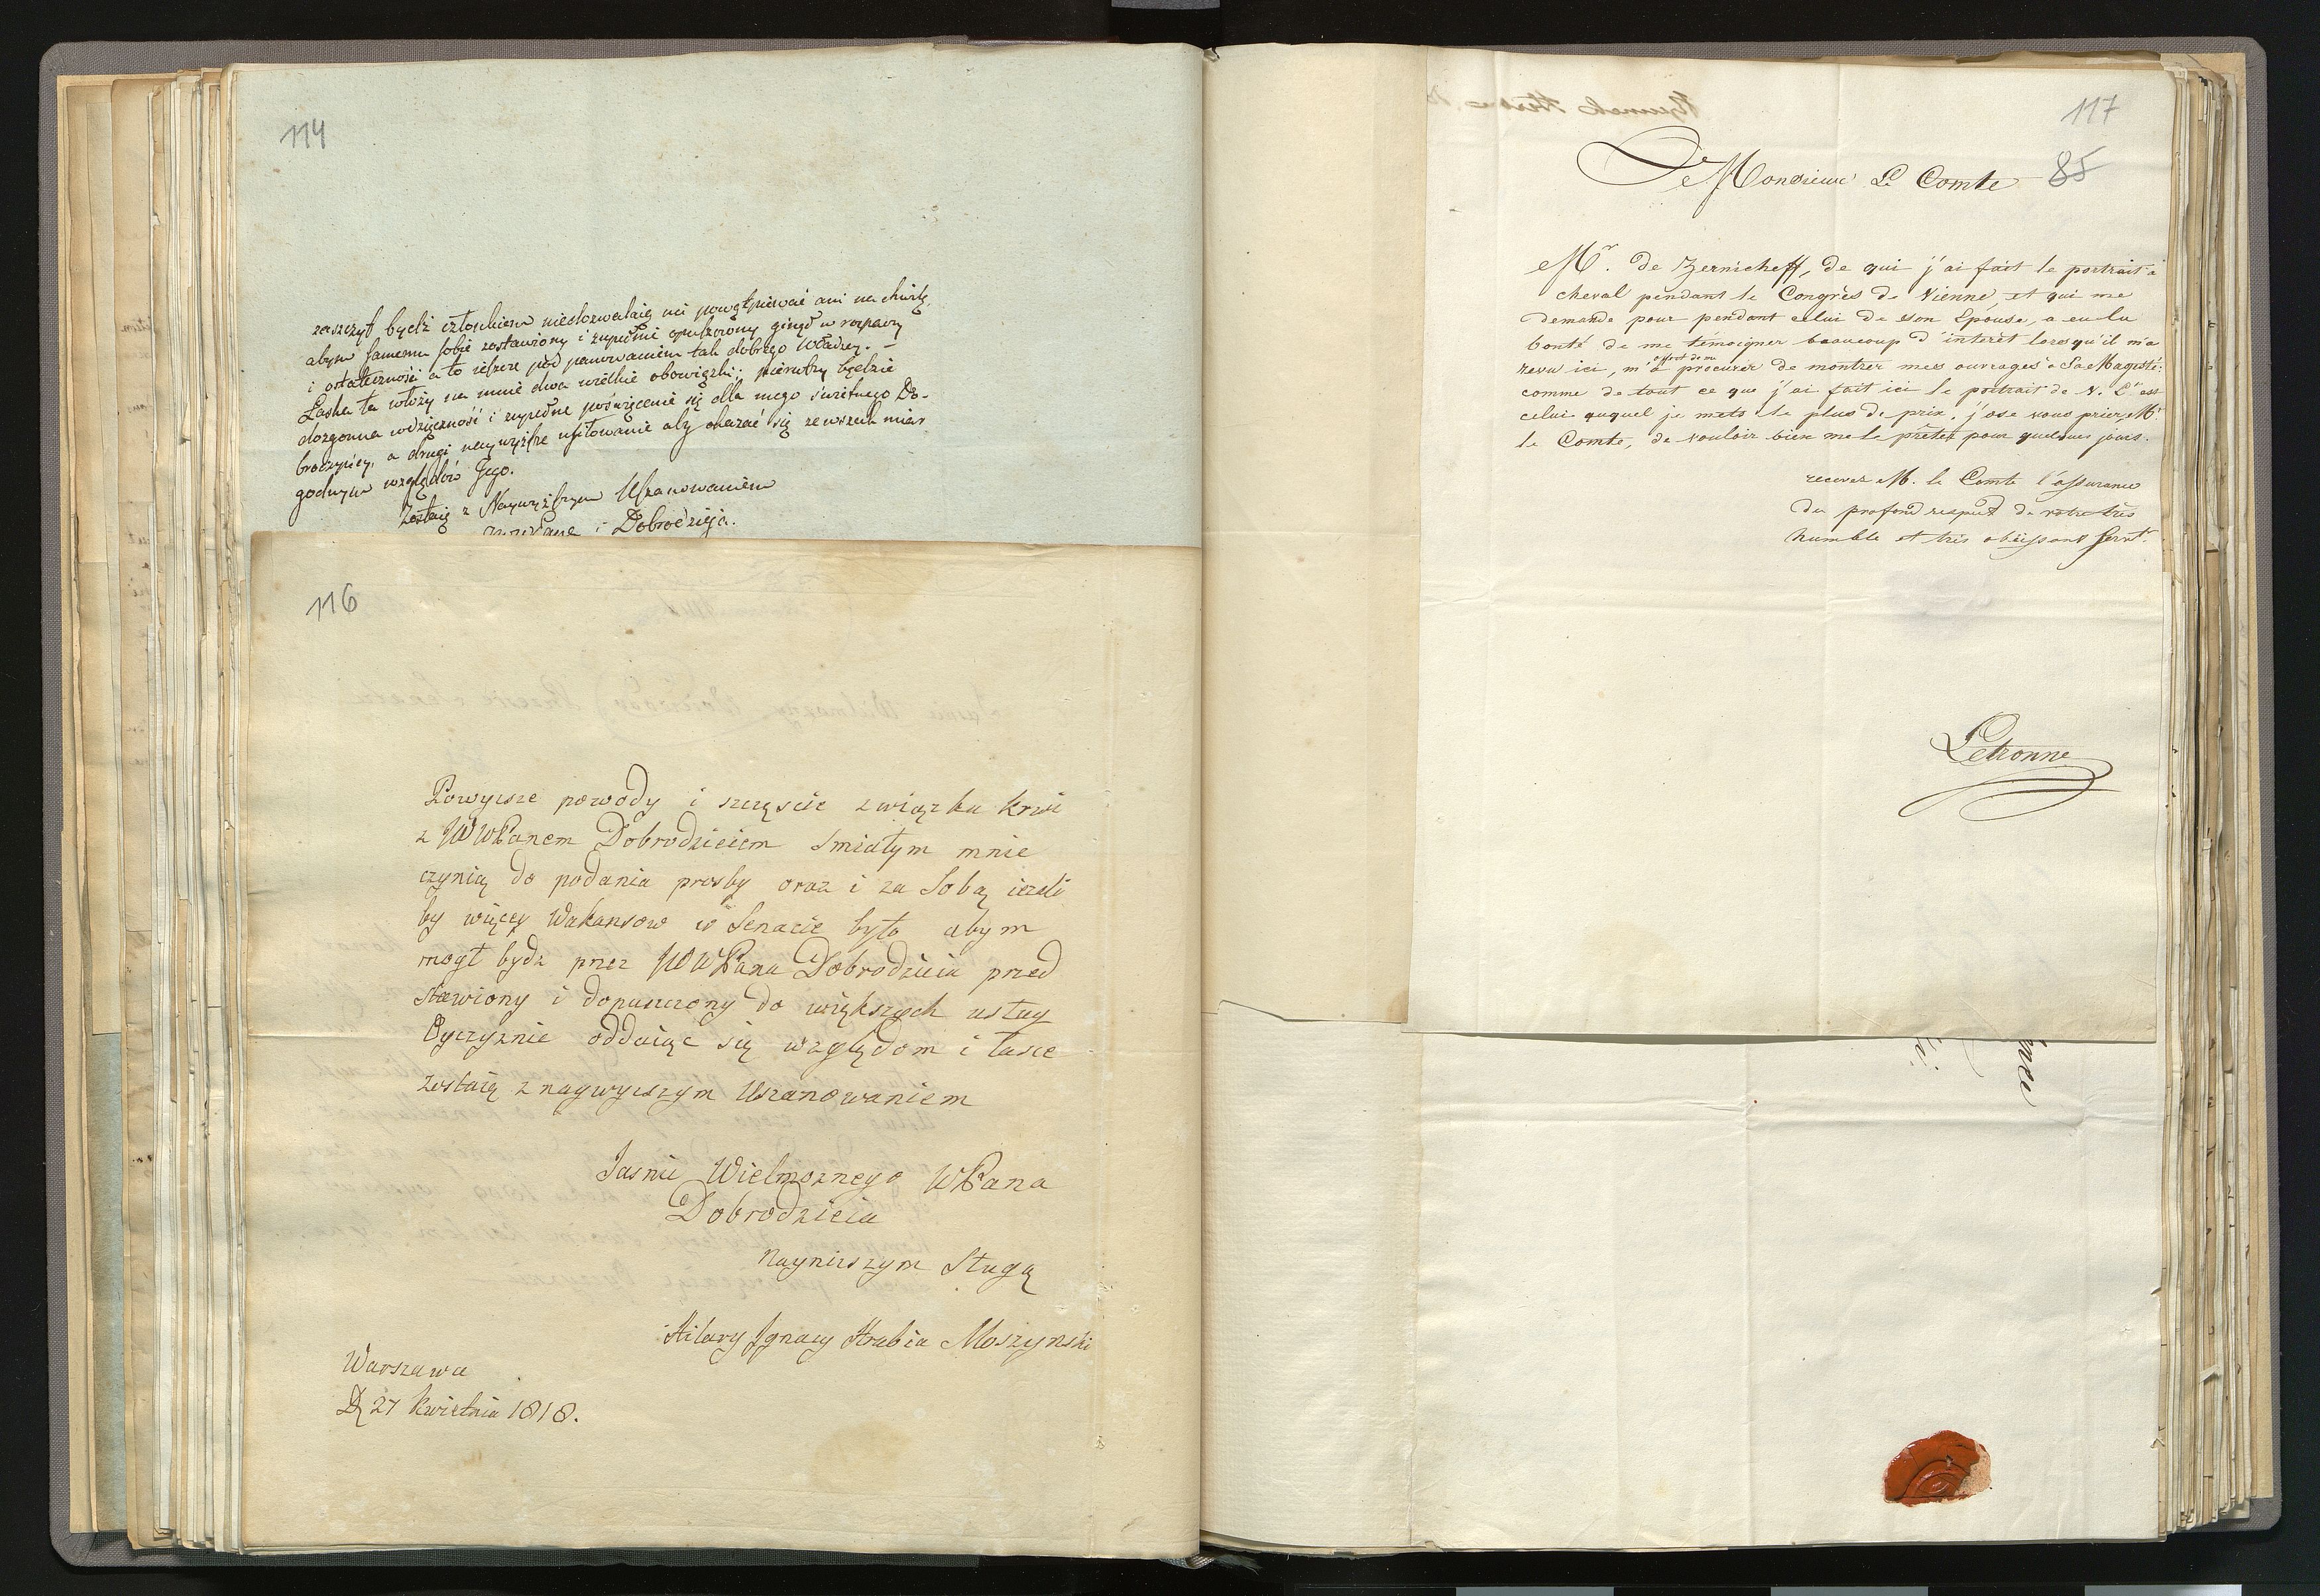 114
zaszczyt bydź człowiekiem niedozwalaią mi powątpiewać ani na chwilę,
abym samemu sobie zostawiony i zupełnie opuszczony ginął w rozpaczy
i ostateczności a to ieszcze pod panowaniem tak dobrego Władzcy. –
Łaska ta włoży na mnie dwa wielkie obowiązki; pierwszy będzie
dozgonna wdzięczność i zupełne poświęcenie się dla mego świetnego Do-
broczyńcy, a drugi naywyższe usiłowanie aby okazać się ze wszech miar
godnym względów Jego.
Zostaię z Naywyższym Uszanowaniem
Dobrodzieja.
116
Powyższe powody i szczęście związku krwi
z JWWPanem Dobrodzieiem smiałym mnie
czynią do podania prosby oraz i za Sobą ieżeli
by więcey Wakansow w Senacie było abym
mogł bydz przez JWWPana Dobrodzieia przed
stawiony i dopuszczony do większych usług
Oyczyznie oddaiąc się względom i łasce
zostaię z naywyższym Uszanowaniem
Jasnie Wielmoznego WPana
Dobrodzieia
Nayniższym Sługą
Hilary Jgnacy Hrabia Moszynski
Warszawa
D 27 Kwietnia 1818.
117
85
Monsieur Le Comte
Mr. de Zernicheff, de qui j'ai fait le portrait à
cheval pendant le Congrès de Vienne, et qui me
demande pour pendant celui de son Epouse, a eu la
bonté de me témoigner beaucoup d'interêt lorsqu'il m'a
revu ici, m'a offert de me procurer de montrer mes ouvrages à Sa Magesté:
comme de tout ce que j'ai fait ici le portrait de V. E. est
celui auquel je mets le plus de prix, j'ose vous prier, Mr
le Comte, de vouloir bien me le prêter pour quelques jours.
recevez M. le Comte l'assurance
du profond respect de votre très
humble et très obéissant Servt.
Letronne